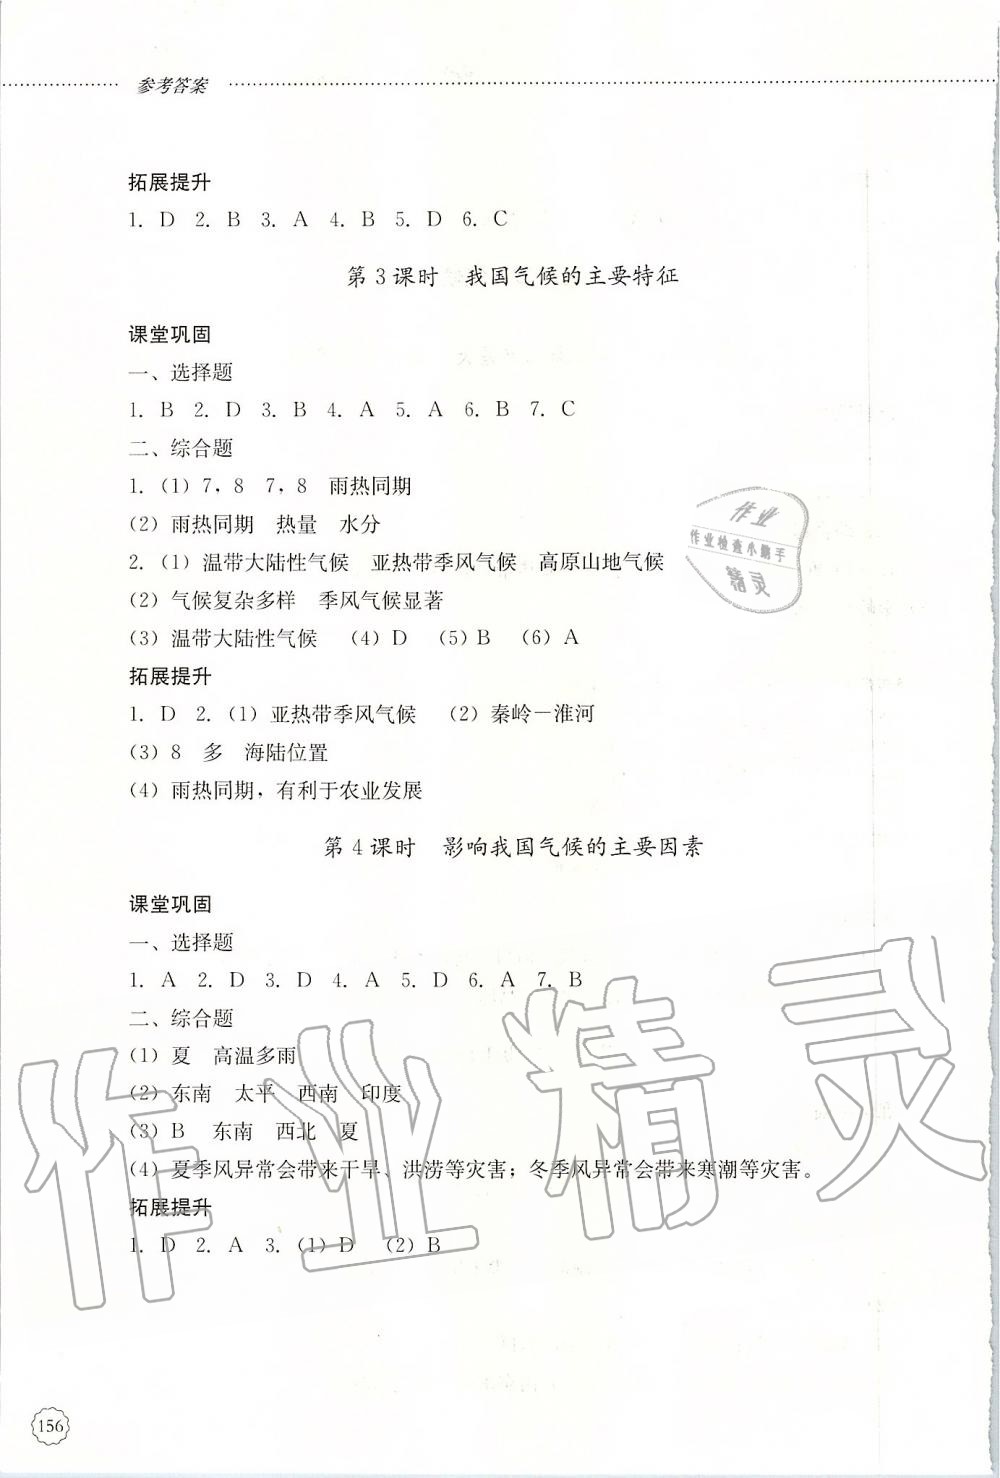 参考答案
拓展提升
1. D 2. B 3. A 4. B 5. D 6. C
第3课时 我国气候的主要特征
课堂巩固
一、选择题
1. B 2. D 3. B 4. A 5. A 6. B 7. C
二、综合题
1.（1）7，8 7，8 雨热同期
（2）雨热同期 热量 水分
2.（1）温带大陆性气候 亚热带季风气候 高原山地气候
（2）气候复杂多样 季风气候显著
（3）温带大陆性气候 （4）D （5）B （6）A
拓展提升
1. D 2.（1）亚热带季风气候 （2）秦岭－淮河
（3）8 多 海陆位置
（4）雨热同期，有利于农业发展
第4课时 影响我国气候的主要因素
课堂巩固
一、选择题
1. A 2. D 3. D 4. A 5. D 6. A 7. B
二、综合题
（1）夏 高温多雨
（2）东南 太平 西南 印度
（3）B 东南 西北 夏
（4）夏季风异常会带来干旱、洪涝等灾害；冬季风异常会带来寒潮等灾害。
拓展提升
1. D 2. A 3.（1）D （2）B
156
作业
作业检查小助手
精灵
作业精灵